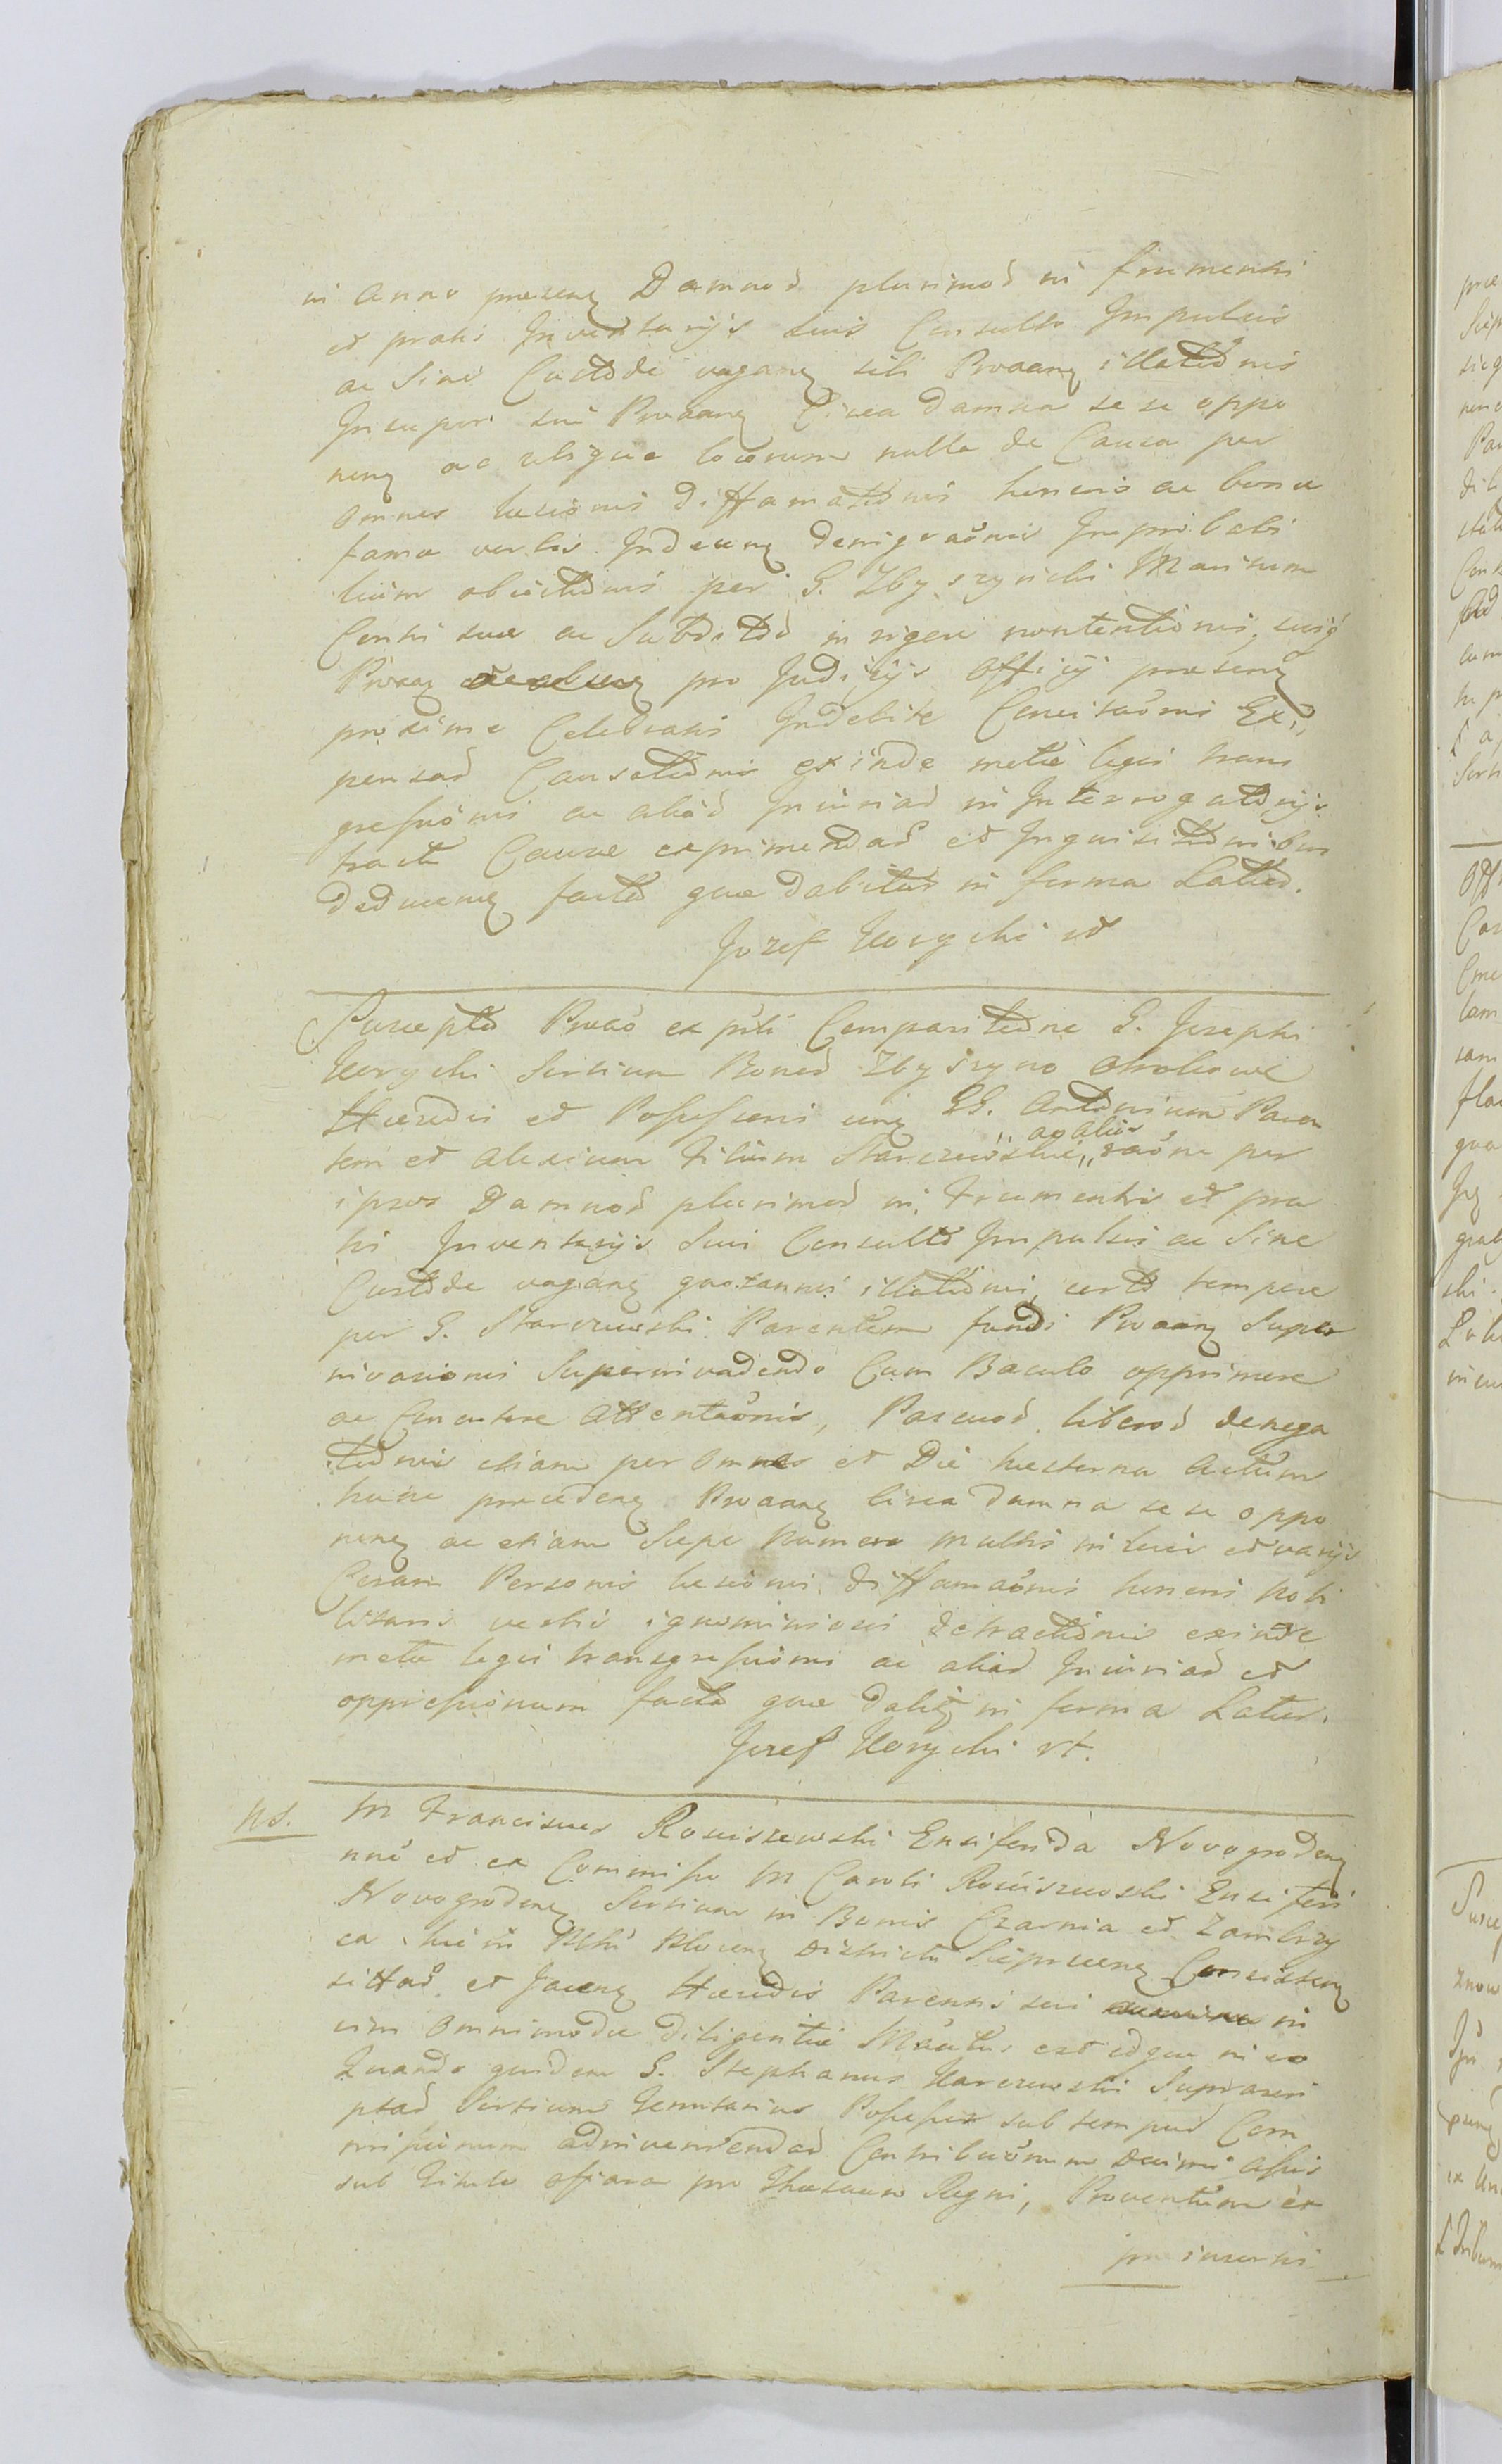 in Anno praesenq Damnoꝝ plurimoꝝ in frumentis
et pratis Inventarijs suis Consulto Impulsis
ac sine Custode vaganq sibi Proaanq illationis
Insuper sui Proaanq Circa damna sese oppo
nenq ac ubique locorum nulla de Causa per
omnes laesionis diffamationis honoris ac bonae
famae verbis Indecenq denigraõnis Improbabi
lium obiectionis per G. Zbyszynski Maritum
Censi suae ac Subditoꝝ in vigore nontentionis, suiq
pro Judicijs Officij praesenq
proxime Celebratis Indebite Concitaõnis Ex,,
pensaꝝ Causationis exinde metae legis trans
gressionis ac aliaꝝ Iniuriaꝝ in Interrogatorijs
tractu Causae exprimendaꝝ et Inquisitionibus
deducenq facto quae dabitur in forma Latior.
Jozef Horychi et
Suscepto Proaõ ex pṡti Comparitione G. Josephi
Horychi Sortium Bonoꝝ Zbyszyno
Haeredis et Possessoris cunq GG. Antonium Paren
tem et Alexium Filium Starczewskie,, ac alias,, raõne per
ipsos Damnoꝝ plurimoꝝ in Frumentis et pra
tis Inventarijs Suis Consulto Impulsis ac Sine
Custode vaganq quotannis illationis, certo tempore
per G. Starczewski Parentem fundi Proaanq Super
invasionis Superinvadendo Cum Baculo opprimere
ac Concutere Attentaõnis, Pascuoꝝ liberoꝝ denega
tionis etiam per Omnes et Die hesterna Actum
hunc praecedenq Proaanq Circa damna sese oppo
nenq ac etiam Saepe numero multis in locis et varijs
Coram Personis laesionis, diffamaõnis honoris Nobi
litaris verbis ignominiosis detractionis exinde
metae legis transgressionis ac aliaꝝ Iniuriaꝝ et
oppressionum facto quae dabitq in forma Latiori.
Jozef Horychi et.
NS. M Franciscus Rosciszewski Ensiferida Novogrodenq
nõe et ex Commisso M Caroli Rosciszewski Ensiferi
Novogrodenq Sortium in Bonis Czarnia et Zambrzy
ca hic in Pltu Plocenq Districtu Sieprcenq Consistenq
sittaꝝ, et Jacenq Haeredis Parentis sui in
vim Omnimodae diligentiae Mãtus est idque in eo
Quando quidem G. Stephanus Karczewski Suprascri
ptaꝝ Sortium Tenutarius Possessor sub tempus Com
missionum adinveniendaꝝ Contributionum decimi assis
sub Titulo ofiara pro Thesauro Regni, Proventum ex
praeinsertis